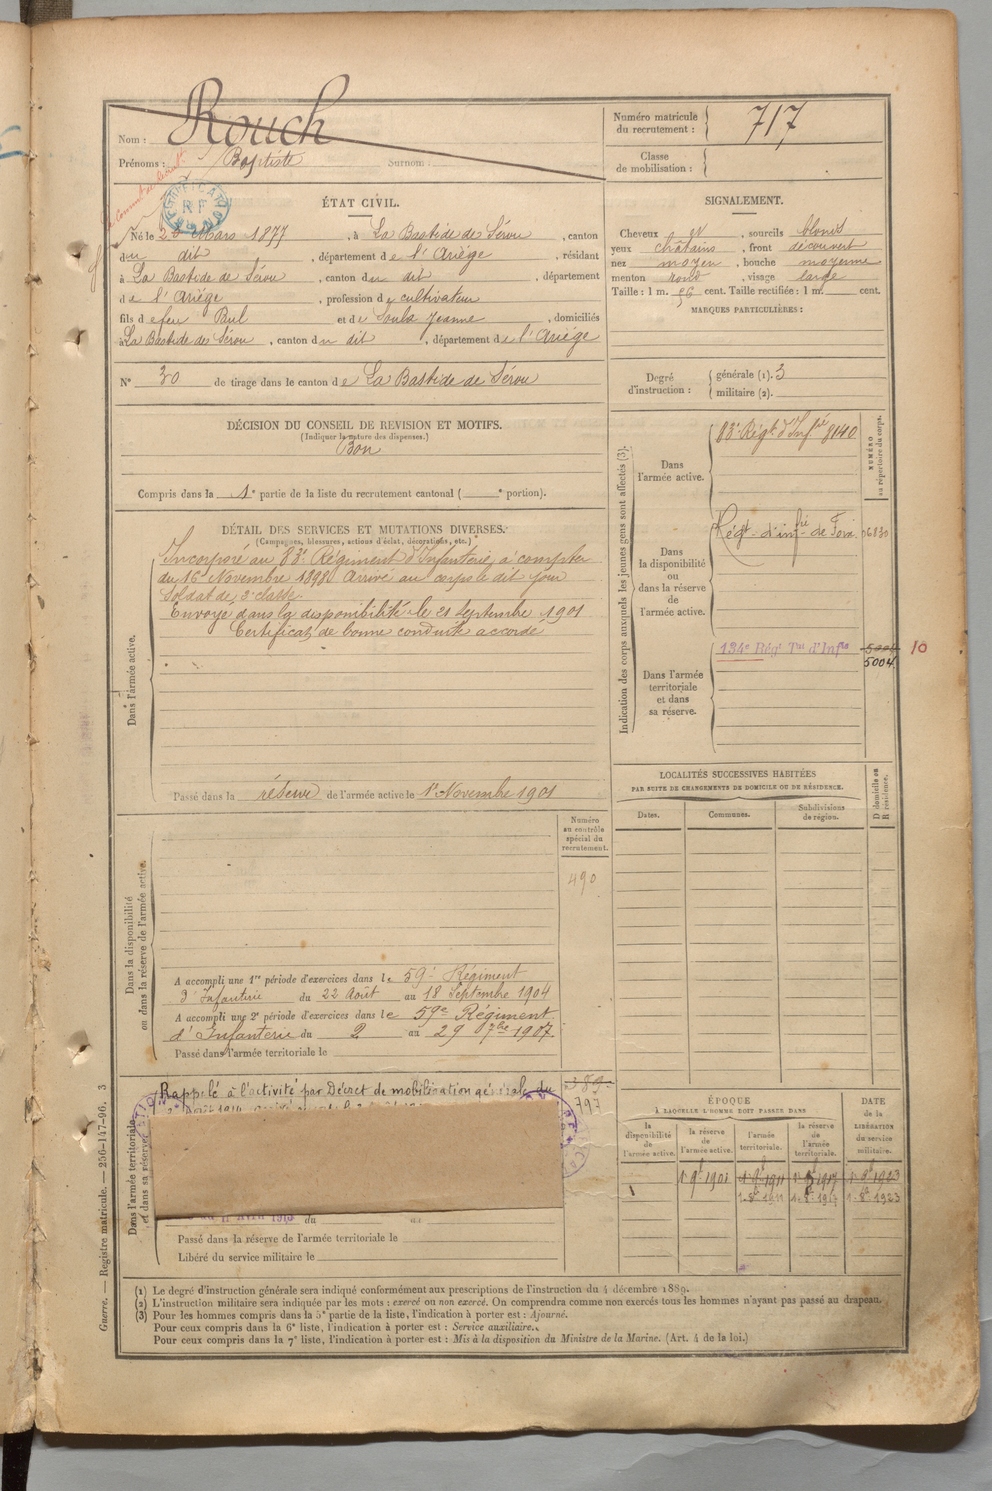 Nom : Rouch
Prénoms : Baptiste Surnom :
Numéro matricule du recrutement : 717
Classe de mobilisation :
ÉTAT CIVIL.
Né le 26 Mars 1877, à La Bastide de Sérou, canton
du dit, département de l'Ariège, résidant
à La Bastide de Sérou, canton du dit, département
de l'Ariège, profession de cultivateur
fils de feu Paul et de Soula Jeanne, domiciliés
à La Bastide de Sérou, canton du dit, département de l'Ariège
N° 30 de tirage dans le canton de La Bastide de Sérou
SIGNALEMENT.
Cheveux et, sourcils blonds
yeux châtains, front découvert
nez moyen, bouche moyenne
menton rond, visage large
Taille : 1 m. cent. Taille rectifiée : 1 m. cent.
MARQUES PARTICULIÈRES :
Degré d'instruction : générale (1). 3
militaire (2).
DÉCISION DU CONSEIL DE REVISION ET MOTIFS.
(Indiquer la nature des dispenses.)
Bon
Compris dans la 1e partie de la liste du recrutement cantonal ( e portion).
DÉTAIL DES SERVICES ET MUTATIONS DIVERSES.
(Campagnes, blessures, actions d'éclat, décorations, etc.)
Dans l'armée active.
Incorporé au 83e Régiment d'Infanterie, à compter
du 16 Novembre 1898. Arrivé au corps le dit jour
Soldat de 2e classe.
Envoyé dans la disponibilité le 21 Septembre 1901
Certificat de bonne conduite accordé
Passé dans la réserve de l'armée active le 1er Novembre 1901
Indication des corps auxquels les jeunes gens sont affectés (3).
NUMÉRO au répertoire du corps.
Dans l'armée active.
83e Régt d'Infie 8140
Dans la disponibilité ou dans la réserve de l'armée active.
Régt d'infie de Foix 06830
Dans l'armée territoriale et dans sa réserve.
134e Régt Tal d'Infie 5004 10
5004
LOCALITÉS SUCCESSIVES HABITÉES
PAR SUITE DE CHANGEMENTS DE DOMICILE OU DE RÉSIDENCE.
Dates. Communes. Subdivisions de région. D domicile ou R résidence.
Dans la disponibilité ou dans la réserve de l'armée active.
Numéro au contrôle spécial du recrutement.
490
A accompli une 1re période d'exercices dans le 59e Régiment
d'Infanterie du 22 Août au 18 Septembre 1904
A accompli une 2e période d'exercices dans le 59e Régiment
d'Infanterie du 2 au 29 7bre 1907.
Passé dans l'armée territoriale le
Dans l'armée territoriale et dans sa réserve.
Rappelé à l'activité par Décret de mobilisation générale du
797
du au
Passé dans la réserve de l'armée territoriale le
Libéré du service militaire le
ÉPOQUE
À LAQUELLE L'HOMME DOIT PASSER DANS
la disponibilité de l'armée active. la réserve de l'armée active. l'armée territoriale. la réserve de l'armée territoriale.
DATE de la LIBÉRATION du service militaire.
1 9e 1901 1 9e 1911 1 9e 1917 1 9e 1923
1. 8e. 1911 1. 8e. 1917 1. 8e. 1923
(1) Le degré d'instruction générale sera indiqué conformément aux prescriptions de l'instruction du 4 décembre 1889.
(2) L'instruction militaire sera indiquée par les mots : exercé ou non exercé. On comprendra comme non exercés tous les hommes n'ayant pas passé au drapeau.
(3) Pour les hommes compris dans la 5e partie de la liste, l'indication à porter est : Ajourné.
Pour ceux compris dans la 6e liste, l'indication à porter est : Service auxiliaire.
Pour ceux compris dans la 7e liste, l'indication à porter est : Mis à la disposition du Ministre de la Marine. (Art. 4 de la loi.)
Guerre. — Registre matricule. — 256-147-96. 3